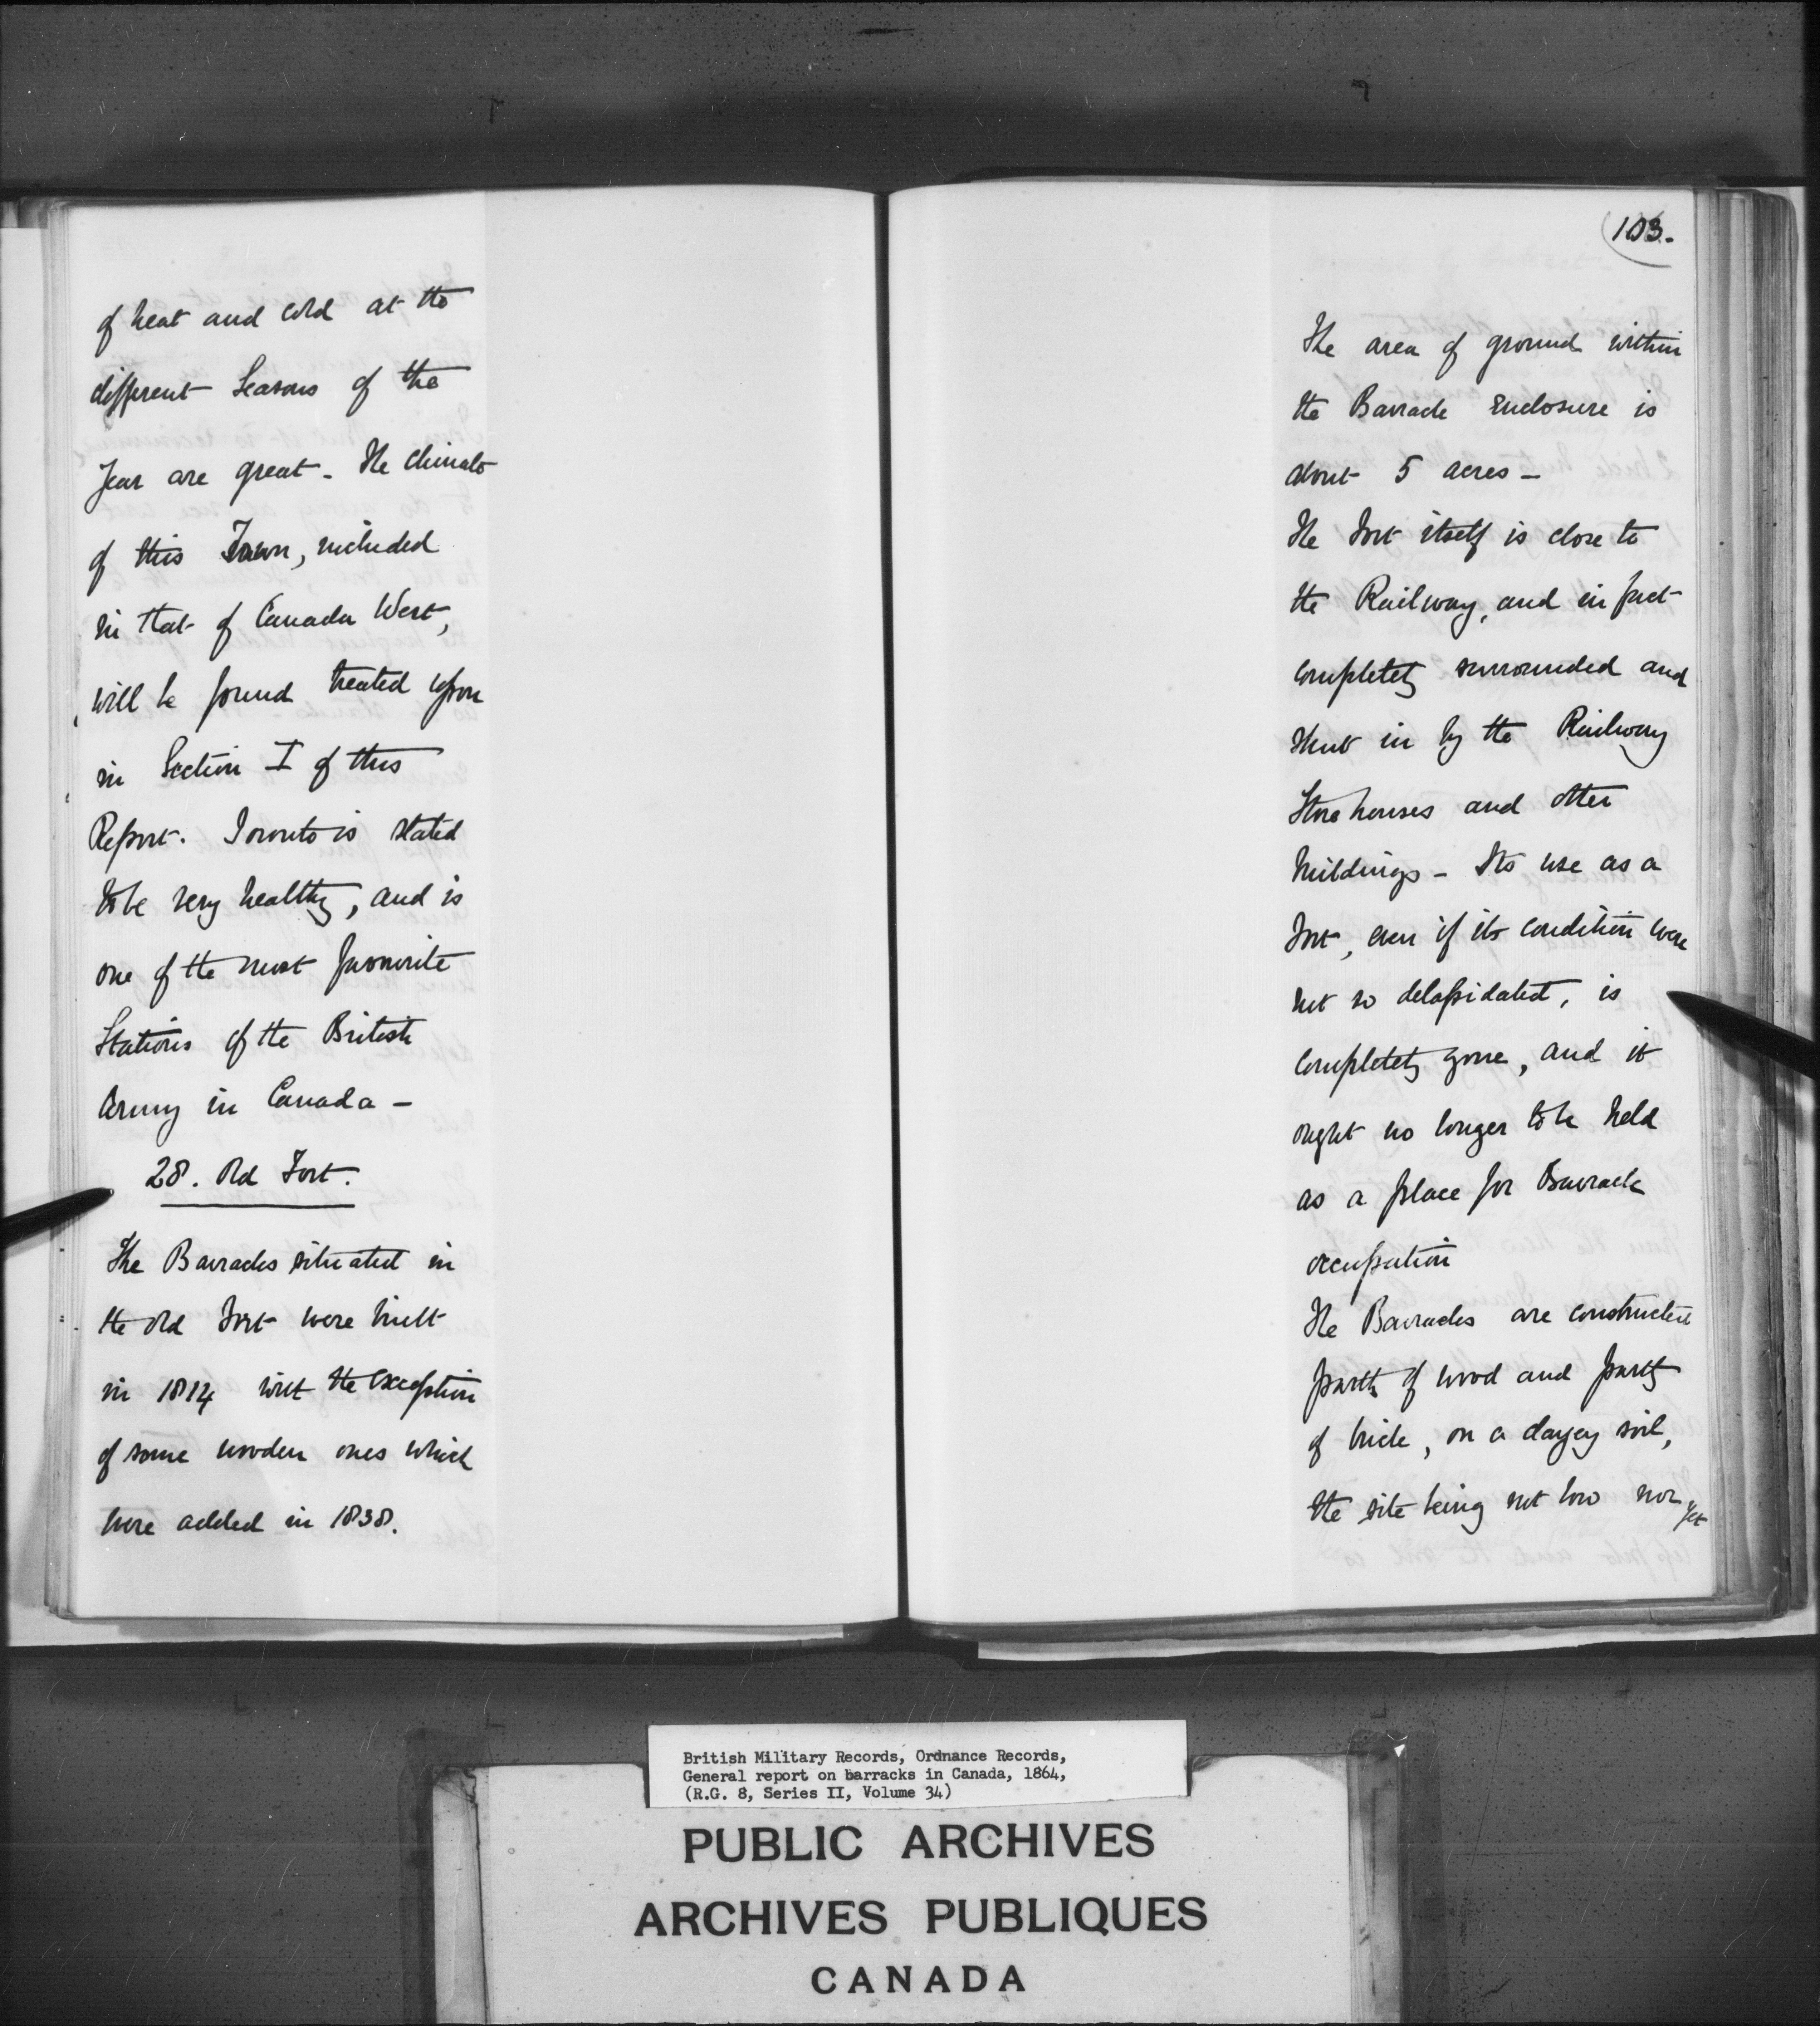 of heat and cold at the
different Seasons of the
Year are great - The climate
of this Town, included
in that of Canada West,
will be found treated upon
in Section I of this
Report. Toronto is stated
to be very healthy, and is
one of the most favourite
Stations of the British
Army in Canada -
28. Old Fort.
The Barracks situated in
the Old Fort were built
in 1814 with the exception
of some wooden ones which
were added in 1838.
103.
The area of ground within
the Barrack enclosure is
about 5 acres -
The Fort itself is close to
the Railway, and in fact
completely surrounded and
shut in by the Railway
Storehouses and other
buildings - Its use as a
Fort, even if its condition were
not so delapidated, is
completely gone, and it
ought no longer to be held
as a place for Barrack
occupation
The Barracks are constructed
partly of wood and partly
of brick, on a clayey soil,
the site being not low nor yet
British Military Records, Ordnance Records,
General report on barracks in Canada, 1864,
(R.G. 8, Series II, Volume 34)
PUBLIC ARCHIVES
ARCHIVES PUBLIQUES
CANADA